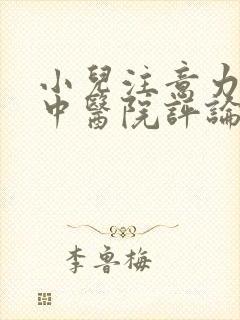 小兒注意力
中醫院評論
李魯梅